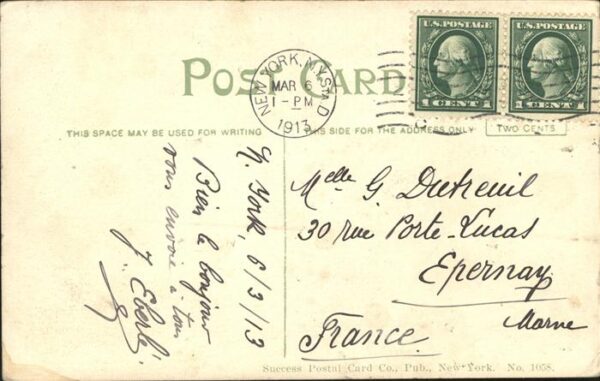 POST CARD
U.S. POSTAGE
1 CENT 1
U.S. POSTAGE
1 CENT 1
NEW YORK, N.Y. STA D
MAR 6
1-PM
1913
THIS SPACE MAY BE USED FOR WRITING
THIS SIDE FOR THE ADDRESS ONLY
TWO CENTS
N. York, 6/3/13
Bien le bonjour
vous envoie à tous
J. Eberlé
Melle G. Dutreuil
30 rue Porte-Lucas
Epernay
Marne
France
Success Postal Card Co., Pub., New York. No. 1058.